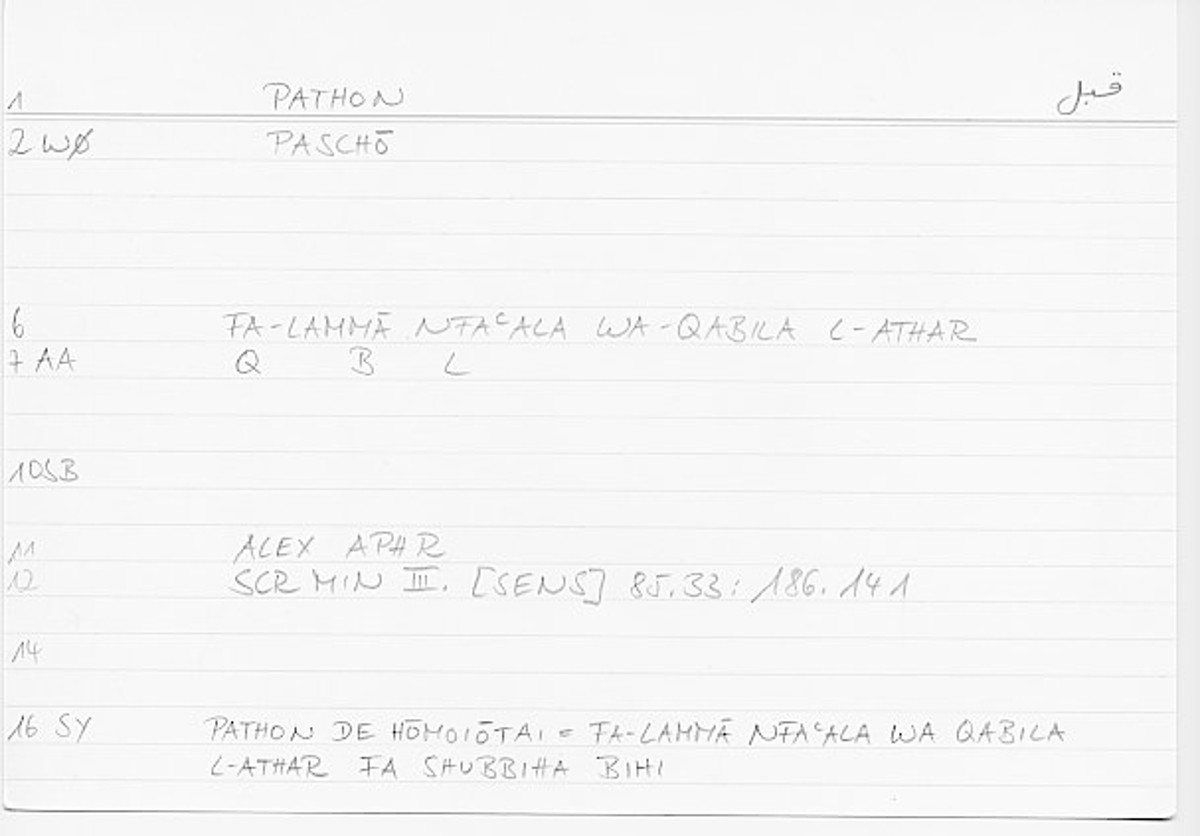 1 PATHON قبل
2 WØ PASCHŌ
6 FA-LAMMĀ NFAʿALA WA-QABILA L-ATHAR
7 AA Q B L
10SB
11 ALEX APHR
12 SCR MIN III. [SENS] 85.33: 186.141
14
16 SY PATHON DE HŌMOIŌTAI = FA-LAMMĀ NFAʿALA WA QABILA
L-ATHAR FA SHUBBIHA BIHI